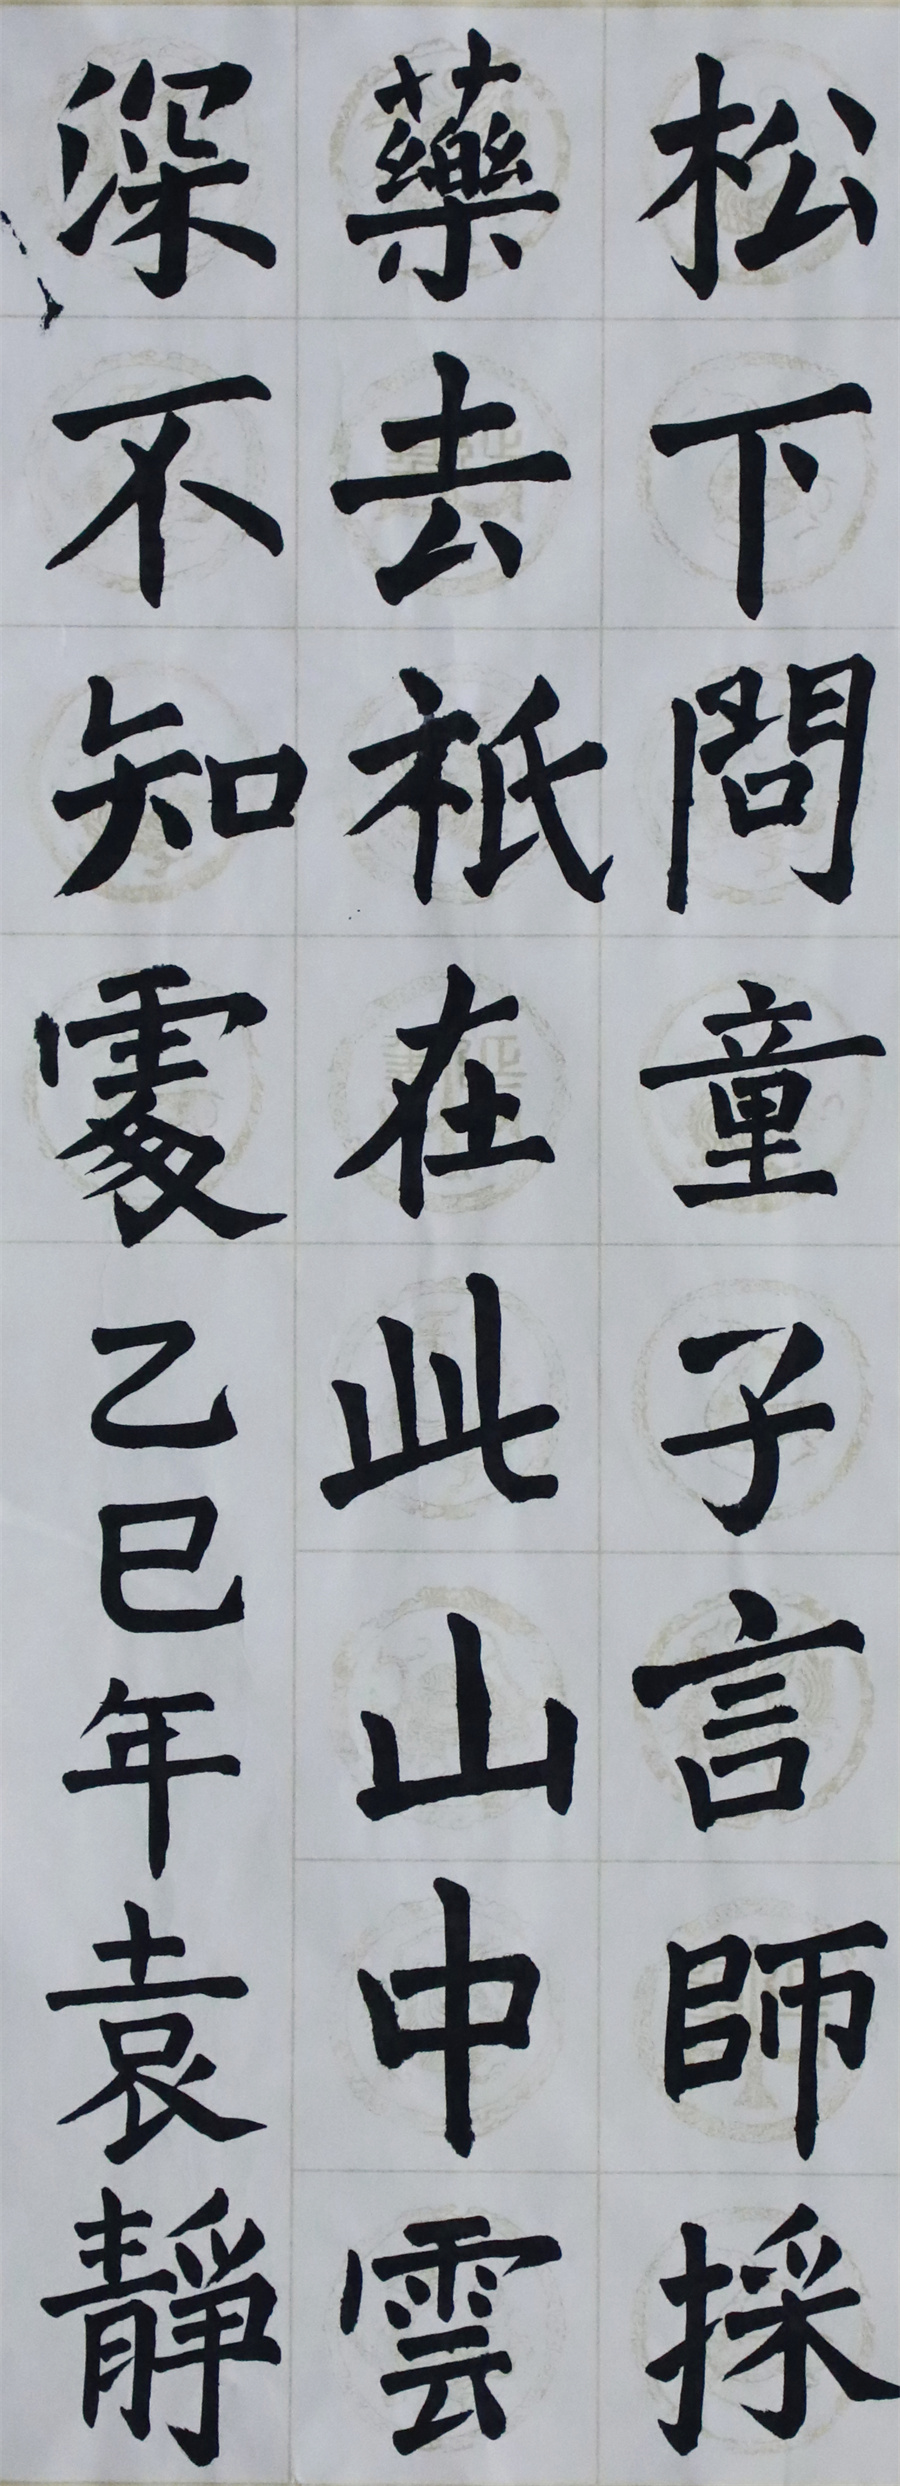 松下問童子言師採
藥去祇在此山中雲
深不知處乙巳年袁靜